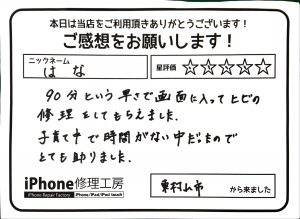 本日は当店をご利用頂きありがとうございます!
ご感想をお願いします!
ニックネーム
はな
星評価 ☆☆☆☆☆
90分という早さで画面に入ってヒビの
修理をしてもらえました.
子育て中で時間がない中だったので
とても助りました.
iPhone修理工房
iPhone Repair Factory iPhone/iPad/iPod touch
東村山市 から来ました